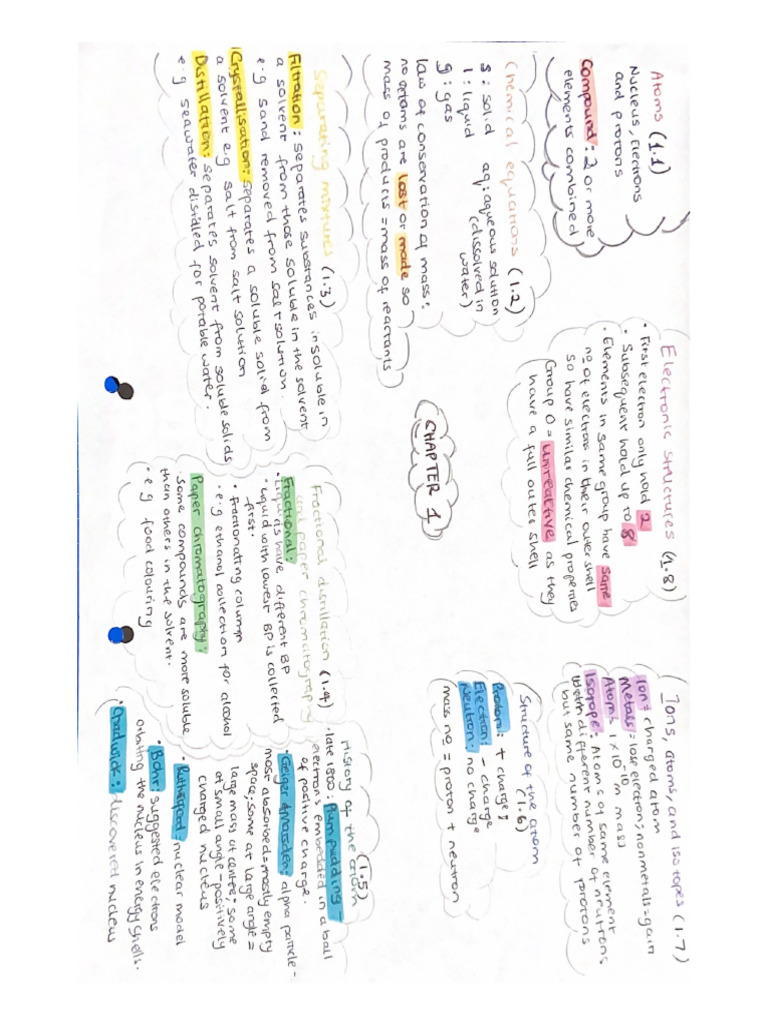 Atoms (1.1)
Nucleus, Electrons
and protons
Compound: 2 or more
elements combined
Chemical equations (1.2)
s: solid aq: aqueous solution
l: liquid (dissolved in
g: gas water)
law of conservation of mass:
no atoms are lost or made so
mass of products = mass of reactants
Separating mixtures (1.3)
Filtration: separates substances insoluble in
a solvent from those soluble in the solvent
e.g sand removed from salt solution.
Crystallisation: separates a soluble solid from
a solvent e.g salt from salt solution
Distillation: separates solvent from soluble solids
e.g seawater distilled for potable water.
Electronic structures (1.8)
• First electron only hold 2
• Subsequent hold up to 8
• Elements in same group have same
no of electrons in their outer shell
so have similar chemical properties
Group 0 = unreactive as they
have a full outer shell
CHAPTER 1
Fractional distillation (1.4)
and paper chromatography
Fractional:
• Liquids have different BP
• Liquid with lowest BP is collected
first.
• Fractionating column
• e.g ethanol collection for alcohol
Paper chromatography:
• some compounds are more soluble
than others in the solvent.
• e.g food colouring
Ions, atoms, and isotopes (1.7)
Ion = charged atom
Metals = lose electron; nonmetals = gain
Atoms: 1 x 10⁻¹⁰ m mass
Isotope: Atoms of same element
with different number of neutrons
but same number of protons
Structure of the atom
(1.6)
Proton: + charge;
Electron: - charge
Neutron: no charge
mass no = proton + neutron
History of the atom (1.5)
• late 1800: Plum pudding -
electrons embedded in a ball
of positive charge.
• Geiger & Marsden: alpha particle -
most absorbed = mostly empty
space; some at large angle =
large mass at centre; some
at small angle - positively
charged nucleus
• Rutherford: nuclear model
• Bohr: suggested electrons
orbiting the nucleus in energy shells.
• Chadwick: discovered nucleus